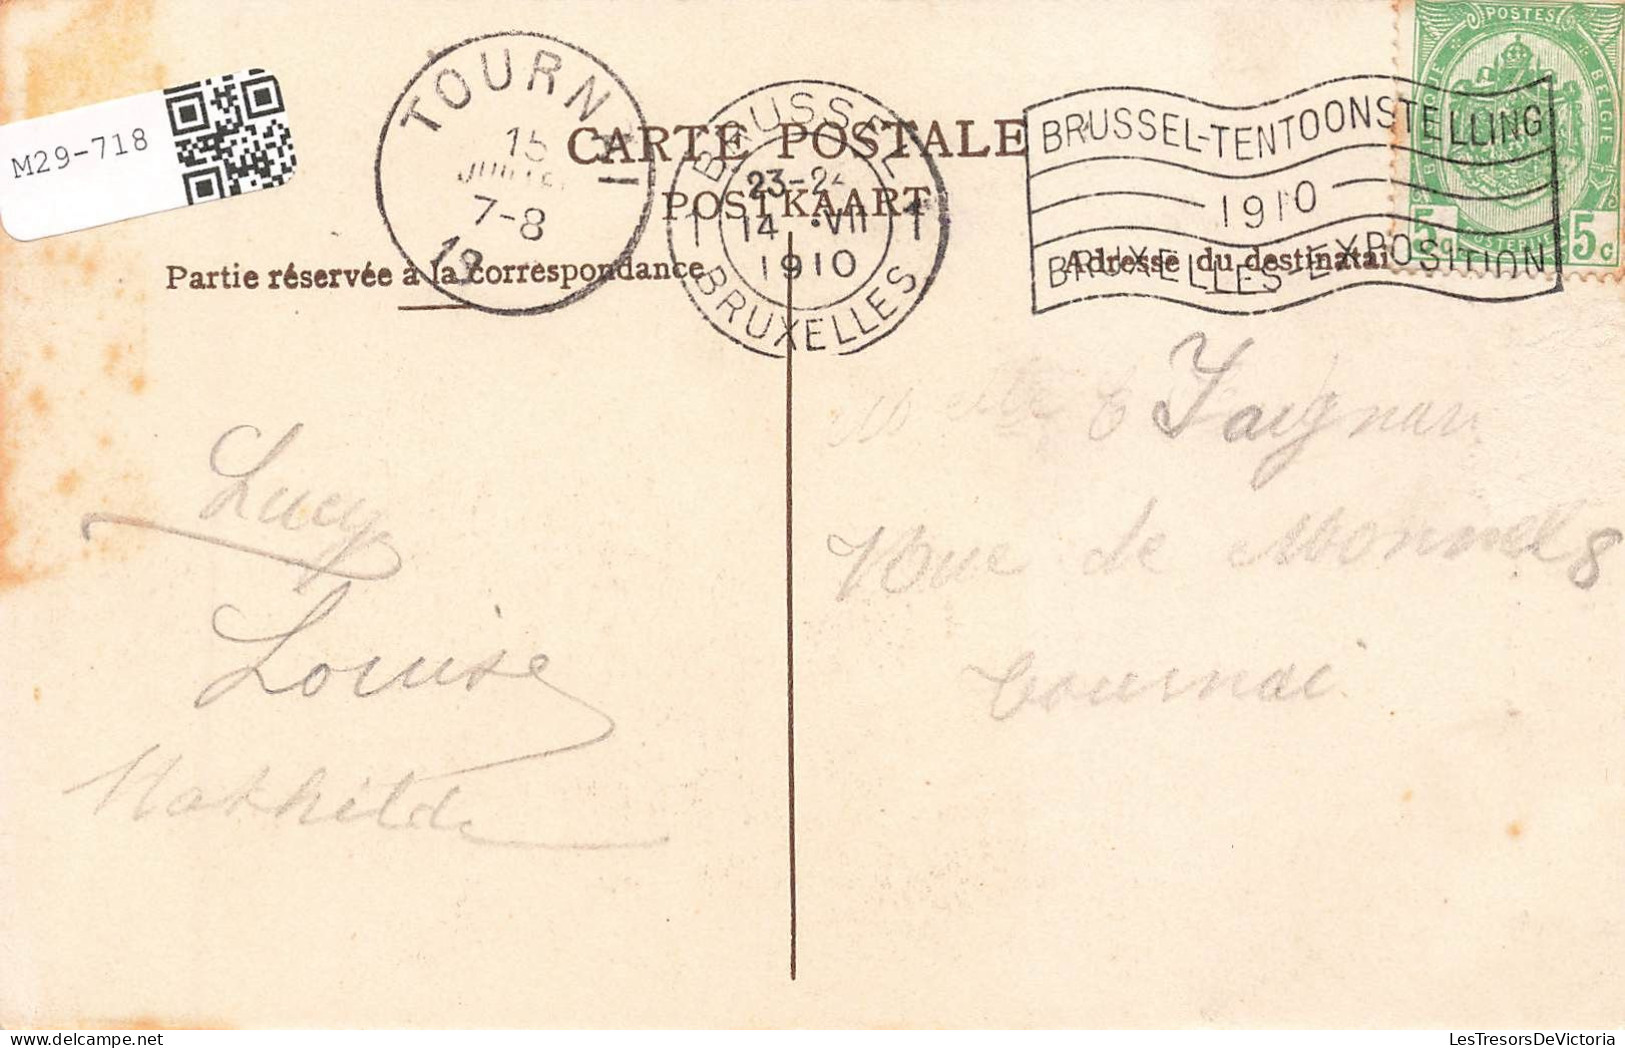 M29-718
TOURNAI
15
7-8
19
CARTE POSTALE
POSTKAART
BRUSSEL
23-24
1 14 VII 1
1910
BRUXELLES
BRUSSEL-TENTOONSTELLING
1910
BRUXELLES-EXPOSITION
POSTES
BELGIQUE BELGIE
5c POSTERIJEN 5c
Partie réservée à la correspondance
Adresse du destinatai
Lucy
Louise
Mathilde
Rue de Monnels 8
Tournai
LesTresorsDeVictoria.com